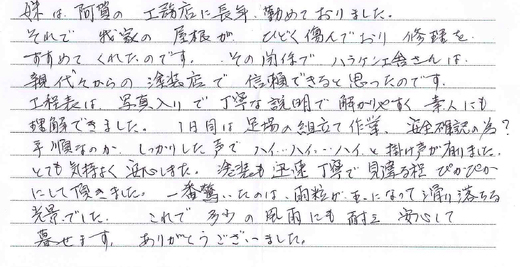 妹は、阿賀の工務店に長年、勤めておりました。
それで我家の屋根がひどく傷んでおり修理を
すすめてくれたのです。その関係でハラケン工舎さんは、
親代々からの塗装店で信頼できると思ったのです。
工程表は、写真入りで丁寧な説明で解かりやすく素人にも
理解できました。1日目は足場の組立て作業、安全確認の為?
手順なのか、しっかりした声でハイ…ハイ…ハイと掛け声が有りました。
とても気持よく安心しました。塗装も迅速丁寧で見違る程ぴかぴか
にして頂きました。一番驚いたのは、雨粒が玉になって滑り落ちる
光景でした。これで多少の風雨にも耐え安心して
暮せます。ありがとうございました。